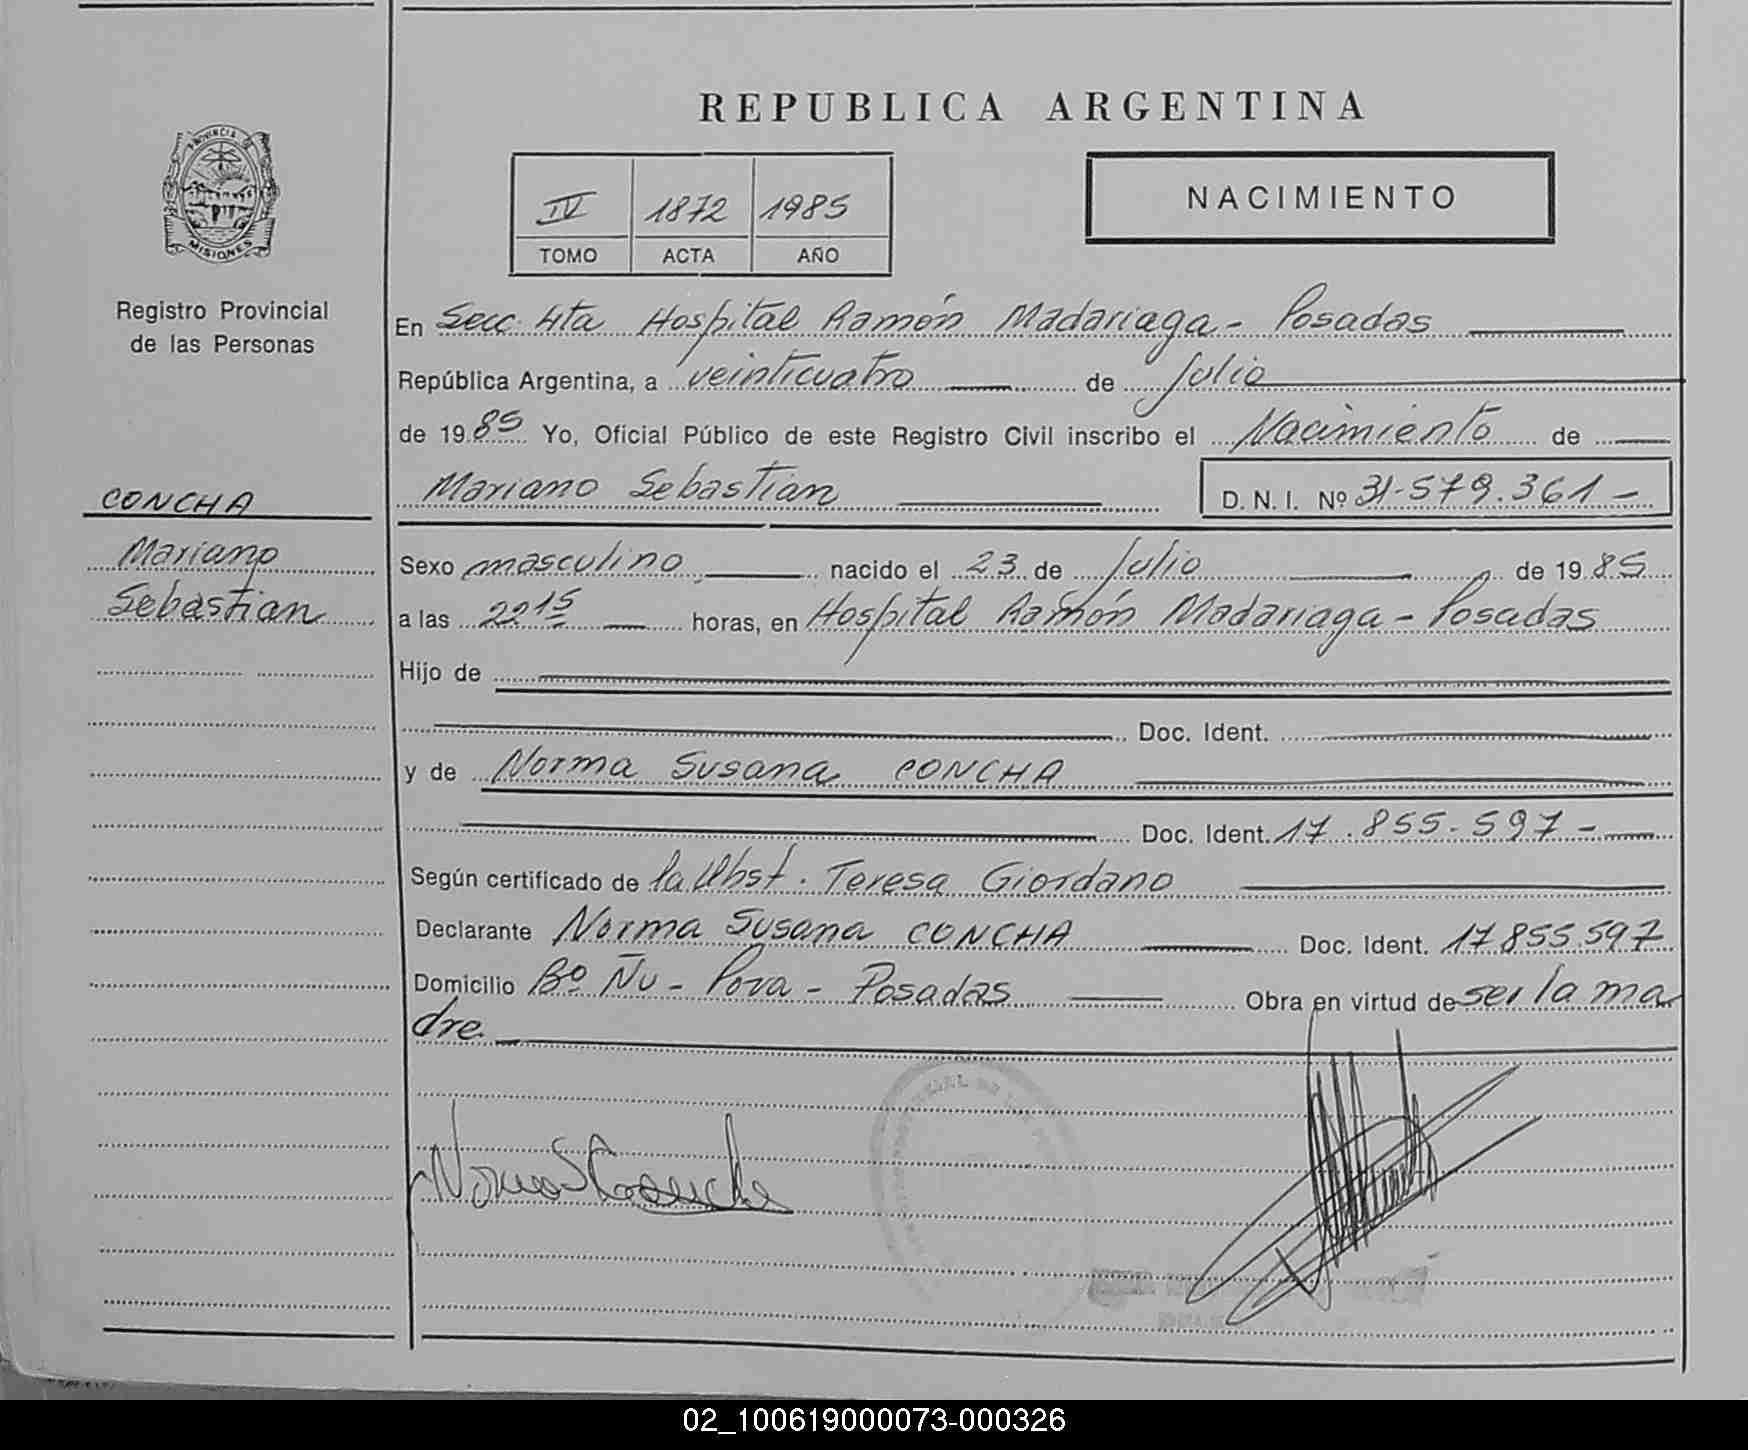 REPUBLICA ARGENTINA
PROVINCIA DE
MISIONES
Registro Provincial
de las Personas
IV 1872 1985
TOMO ACTA AÑO
NACIMIENTO
En Secc. 4ta Hospital Ramón Madariaga - Posadas
República Argentina, a veinticuatro de Julio
de 1985 Yo, Oficial Público de este Registro Civil inscribo el Nacimiento de
Mariano Sebastian D. N. I. Nº 31.579.361 -
CONCHA
Mariano
Sebastian
Sexo masculino, nacido el 23 de Julio de 1985
a las 22 15 horas, en Hospital Ramón Madariaga - Posadas
Hijo de
Doc. Ident.
y de Norma Susana CONCHA
Doc. Ident. 17.855.597 -
Según certificado de la Obst. Teresa Giordano
Declarante Norma Susana CONCHA Doc. Ident. 17.855.597
Domicilio Bº Ñu - Pora - Posadas Obra en virtud de ser la ma
dre
Norma S Concha
02_100619000073-000326